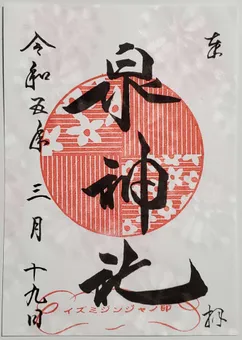 奉拝
泉神社
イズミジンジャノ印
令和五年三月十九日